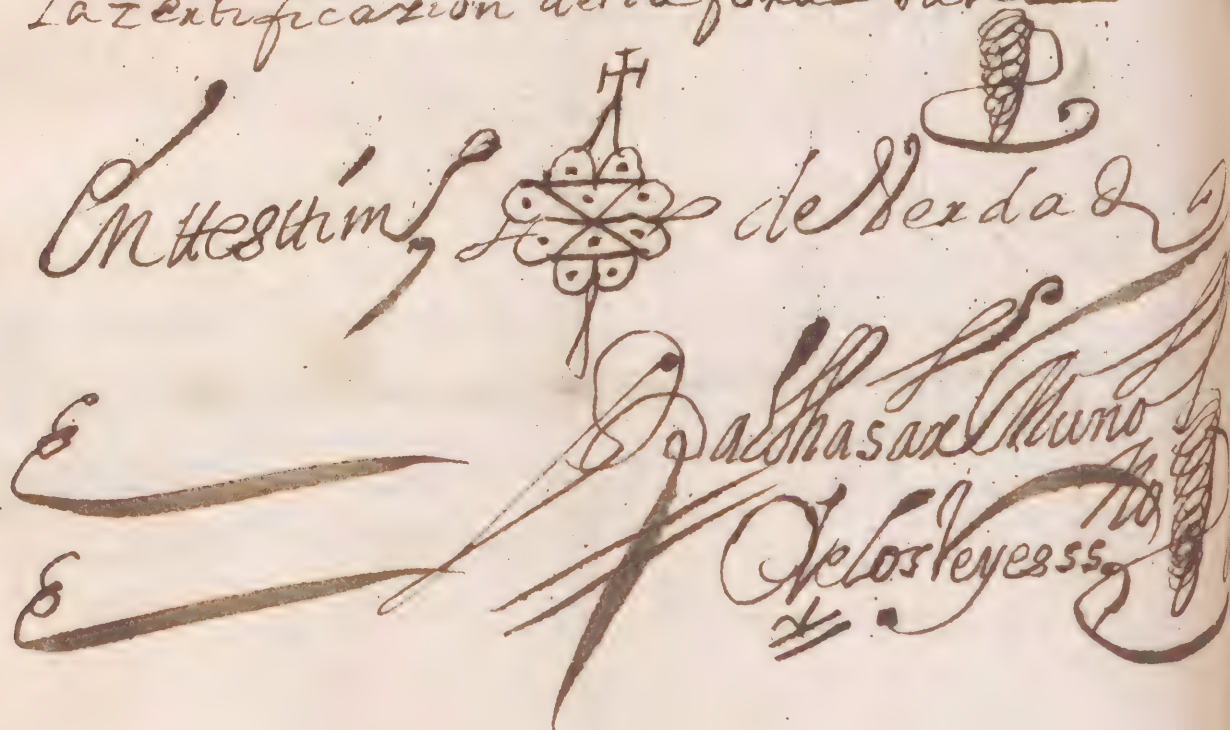 La zertificazion de la foxa
En ttesttimº de Verdad
Balthasar Muño
de los Reyes ss